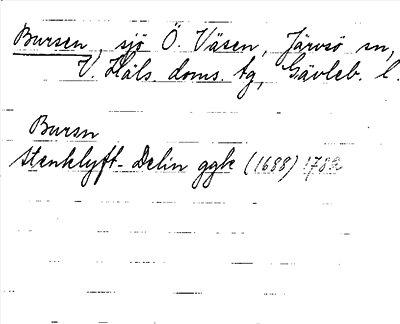 Bursen, sjö Ö. Väsen, Järvsö sn,
V. Häls. doms. tg, Gävleb. l.
Bursn
Stenklyft- Delin ggk (1688) 178